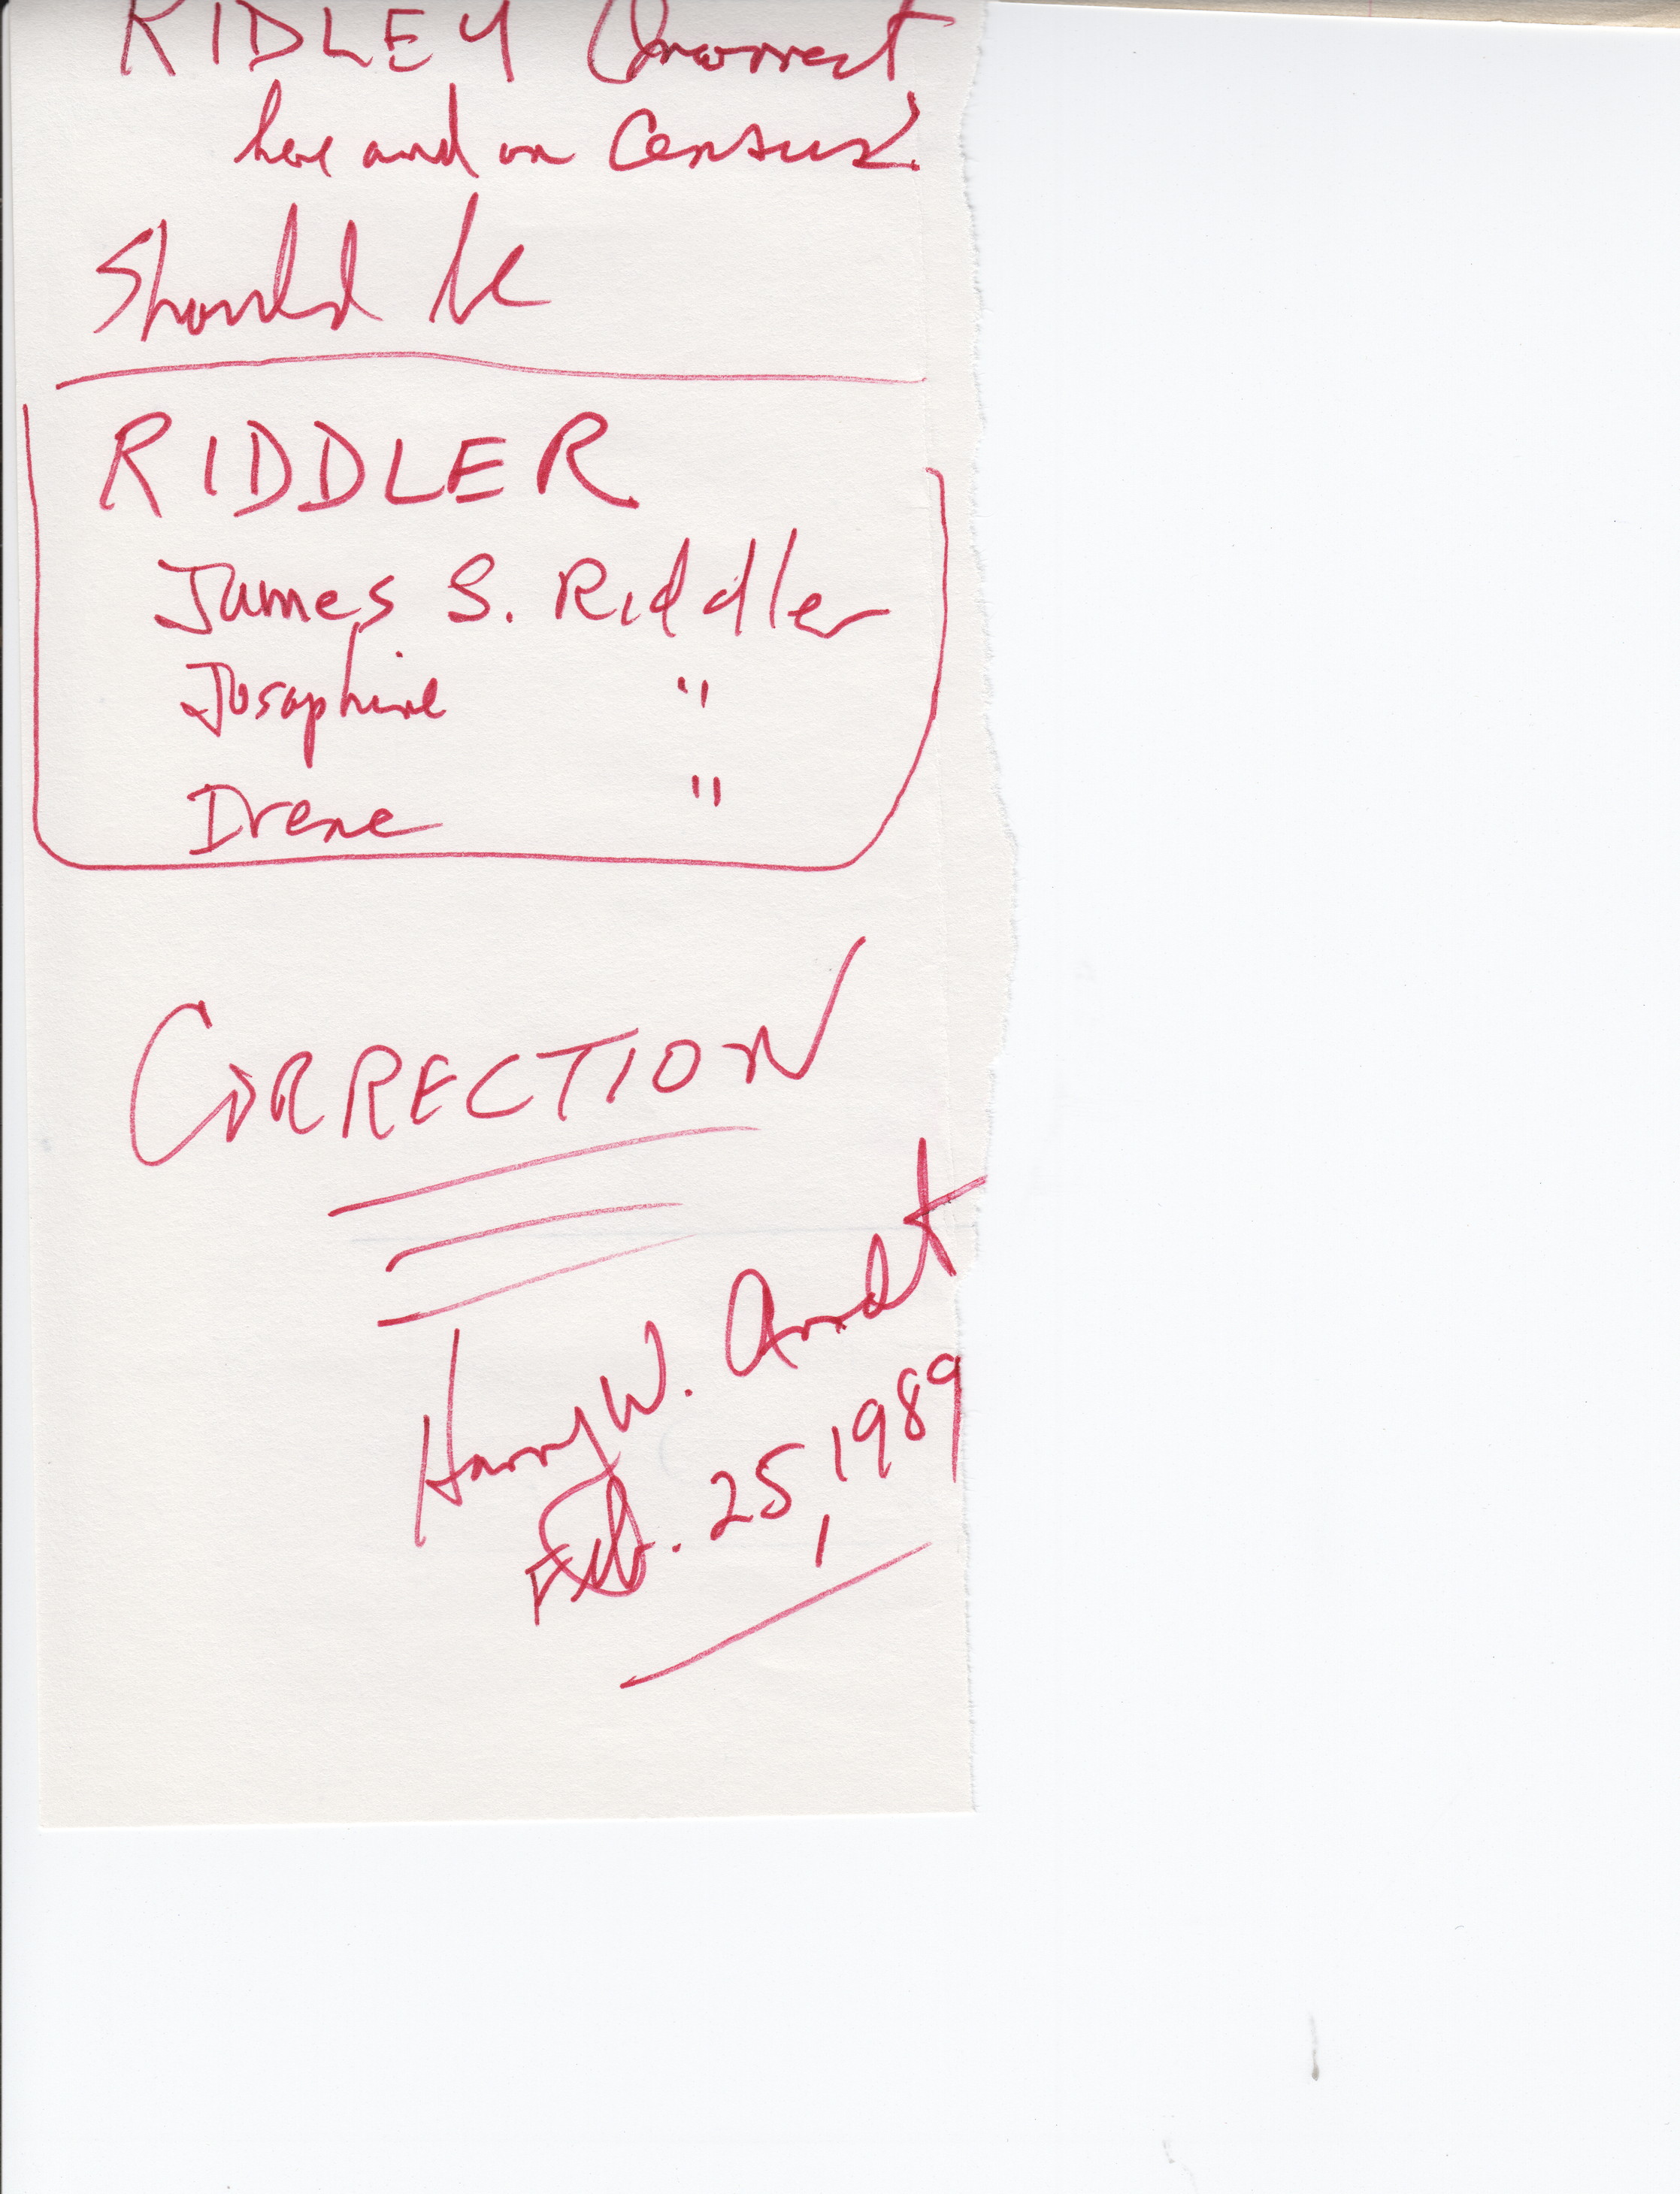 RIDLEY Incorrect
here and on Census
Should be
RIDDLER
James S. Riddler
Josephine "
Irene "
CORRECTION
Harry W. Arndt
Feb. 25, 1989